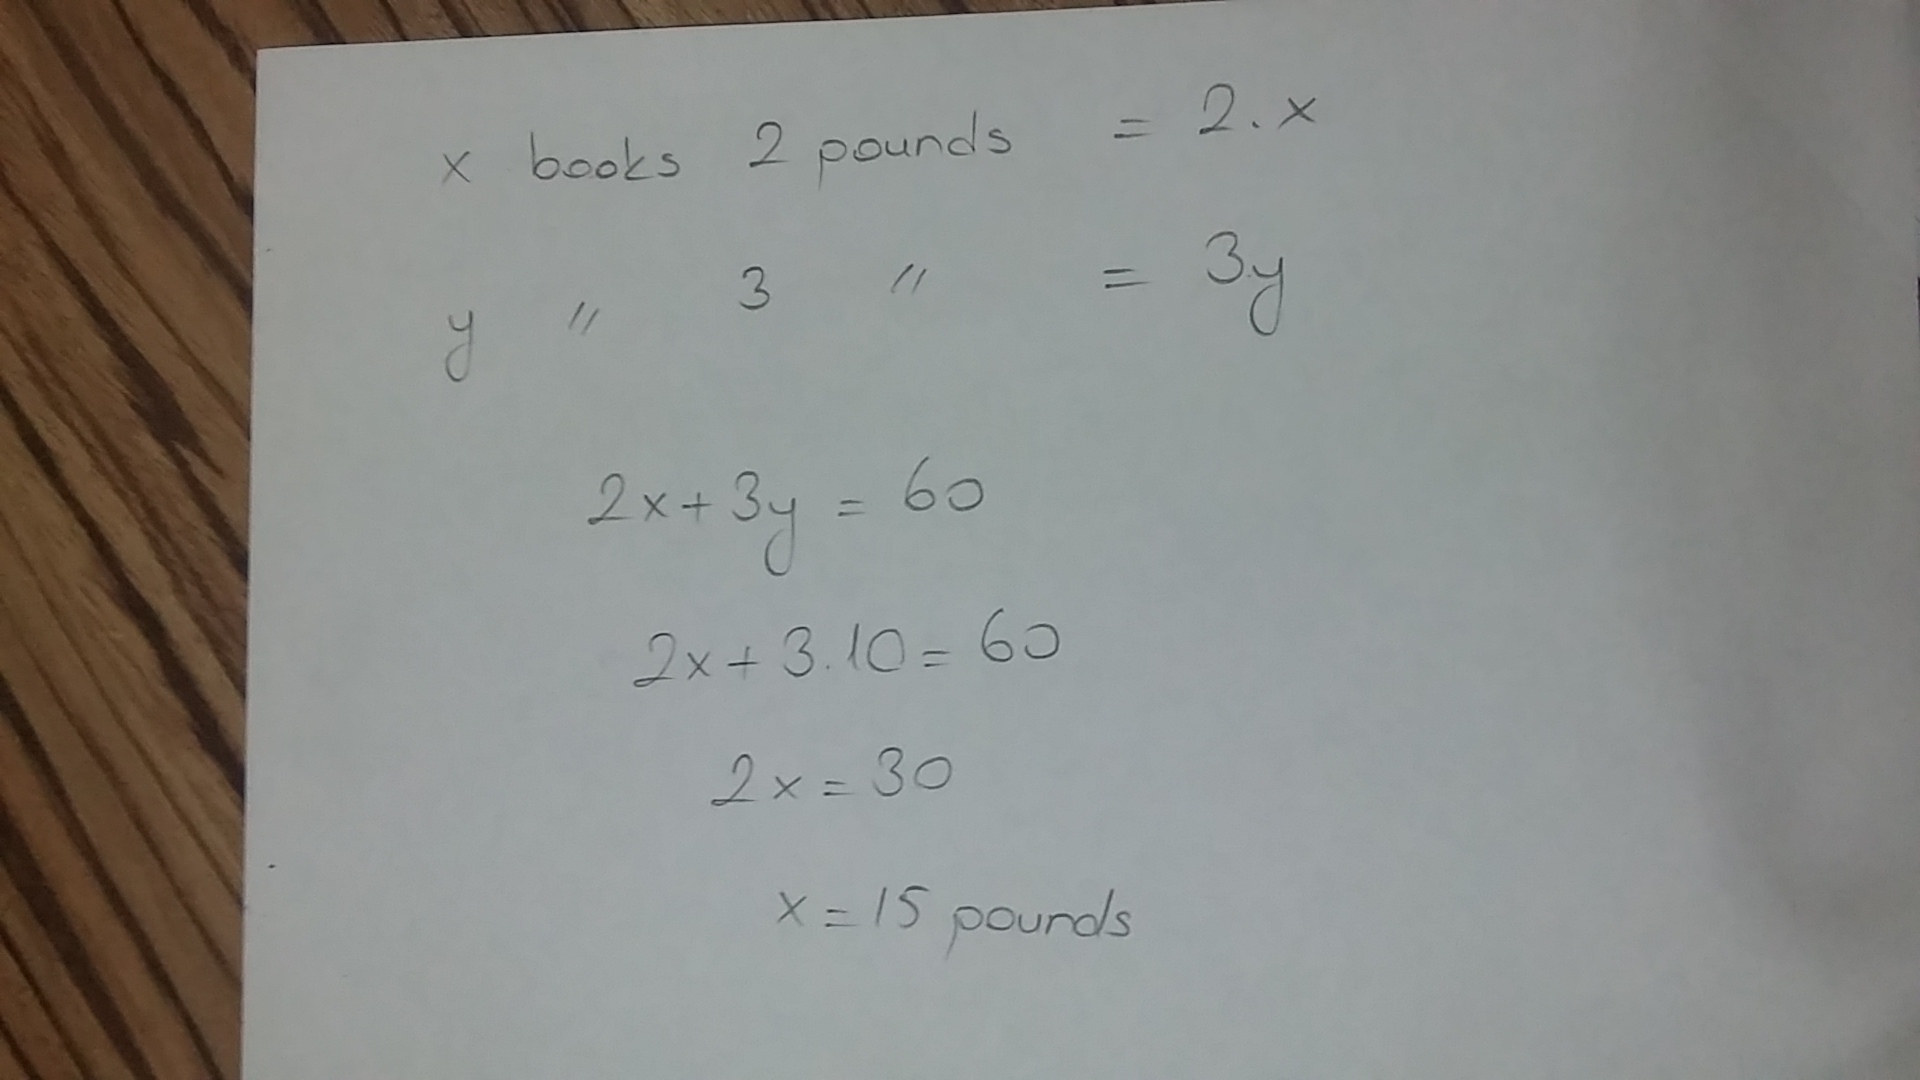 x books 2 pounds = 2.x
y " 3 " = 3y
2x+3y = 60
2x+3.10=60
2x=30
x=15 pounds